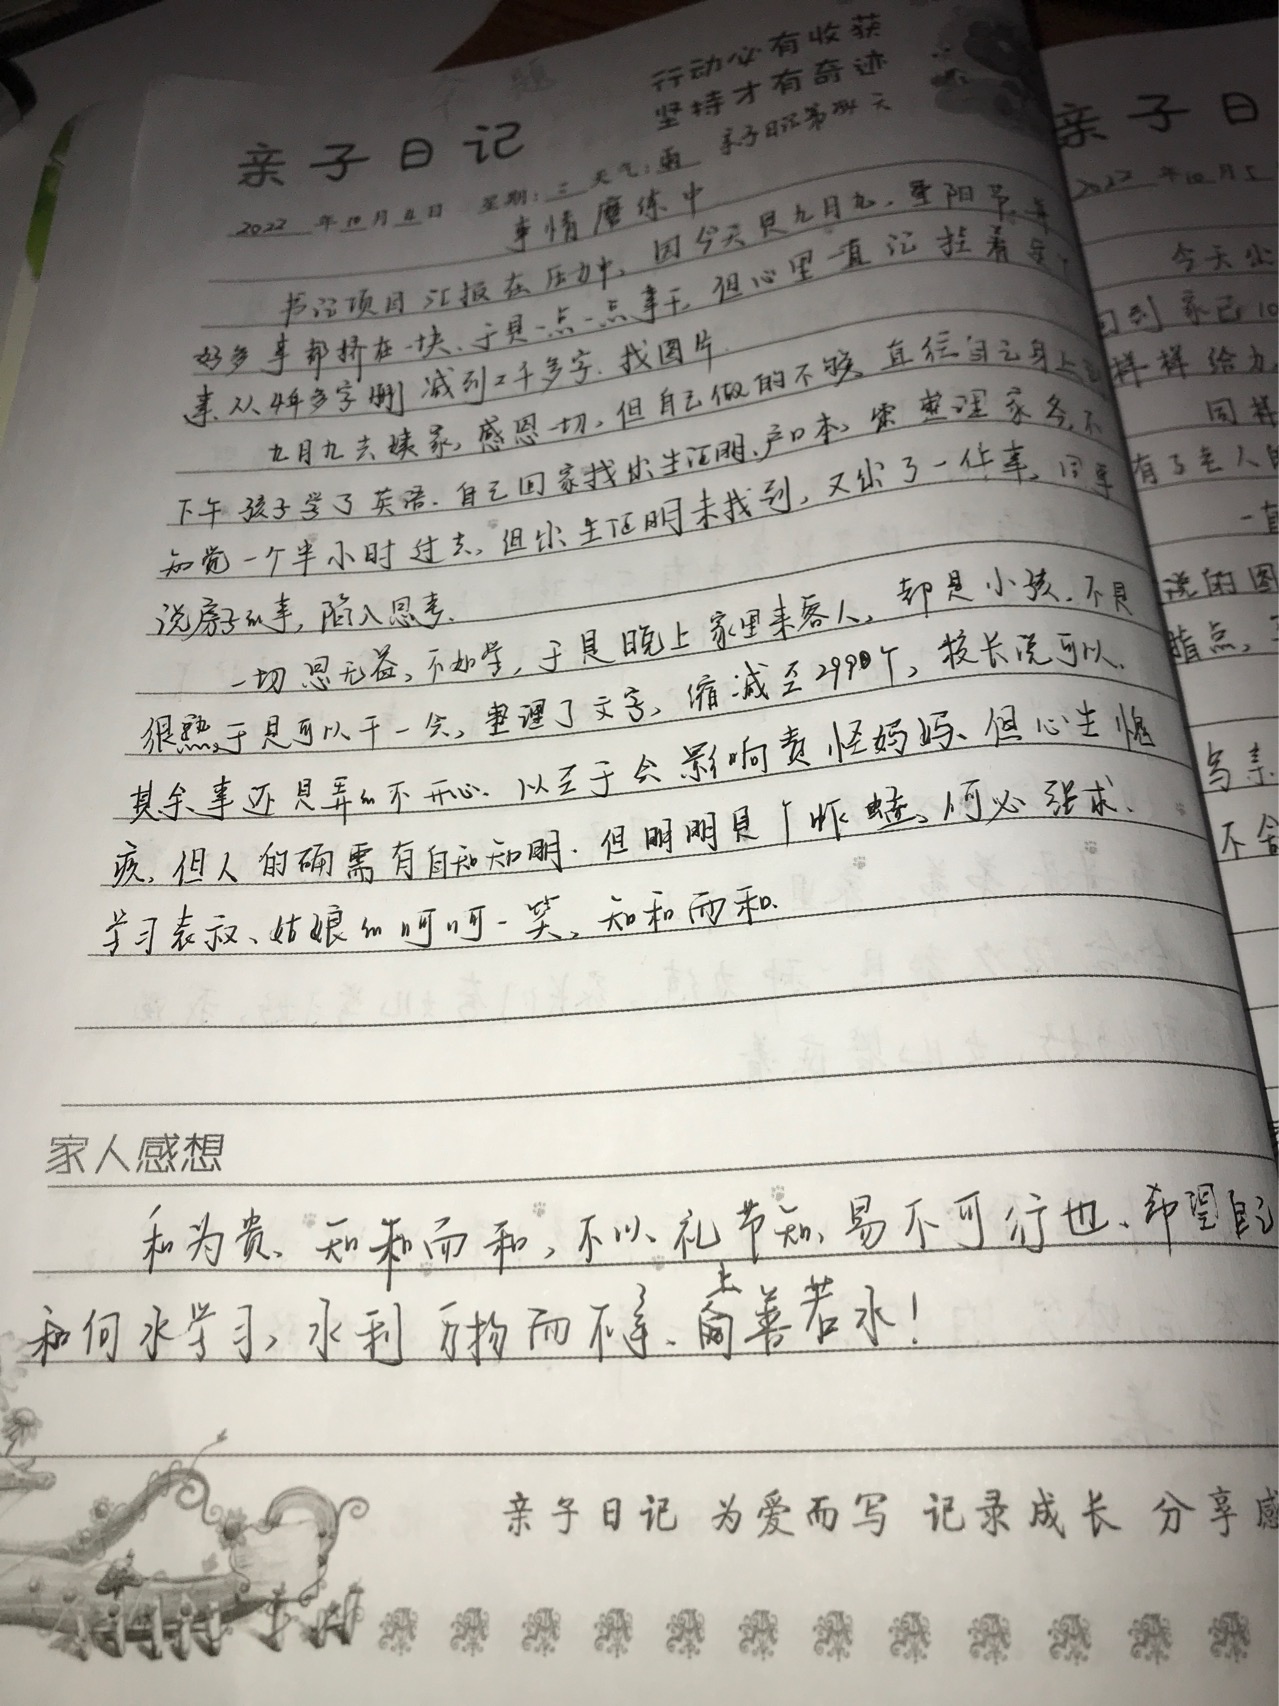 行动必有收获
坚持才有奇迹
亲子日记第 天
亲子日记
2022年10月4日 星期:三 天气:雨
事情磨练中
书记项目汇报在压力中,因今天是九月九,重阳节,
好多事都挤在一块、于是一点一点事干,但心里一直记挂着
事、从4千多字删减到2千多字、找图片.
九月九去姨家,感恩一切,但自己做的不够,直在自己身上
下午孩子学了英语.自己回家找出生证明、户口本,需整理家务,不
知觉一个半小时过去,但出生证明未找到,又出了一件事,
说房子的事,陷入思考.
一切思无益,不如学,于是晚上家里来客人,都是小孩.不是
很熟,于是可以干一会,整理了文字,缩减至2990个,校长说可以.
其余事还是弄的不开心.以至于会影响责怪妈妈、但心生愧
疚,但人的确需有自知知明.但明明是个蚱蜢、何必强求.
学习表叔、姑娘的呵呵一笑、知和而和.
家人感想
和为贵、知和而和,不以礼节知、易不可行也、希望自己
和何水学习,水利万物而不争、上善若水!
亲子日记 为爱而写 记录成长 分享感
亲子日
2022年10月5
今天
回到家已10
样样给力
同样
有了老人
一直
说的图
指点,
写亲
不舍